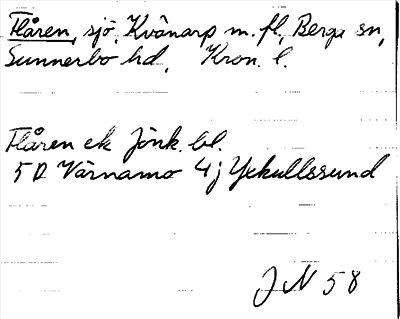 Flåren, sjö, Kvänarp m. fl., Berga sn,
Sunnerbo hd, Kron. l.
Flåren ek Jönk. bl.
5 D Värnamo 4 j Yxkullssund
J N 58